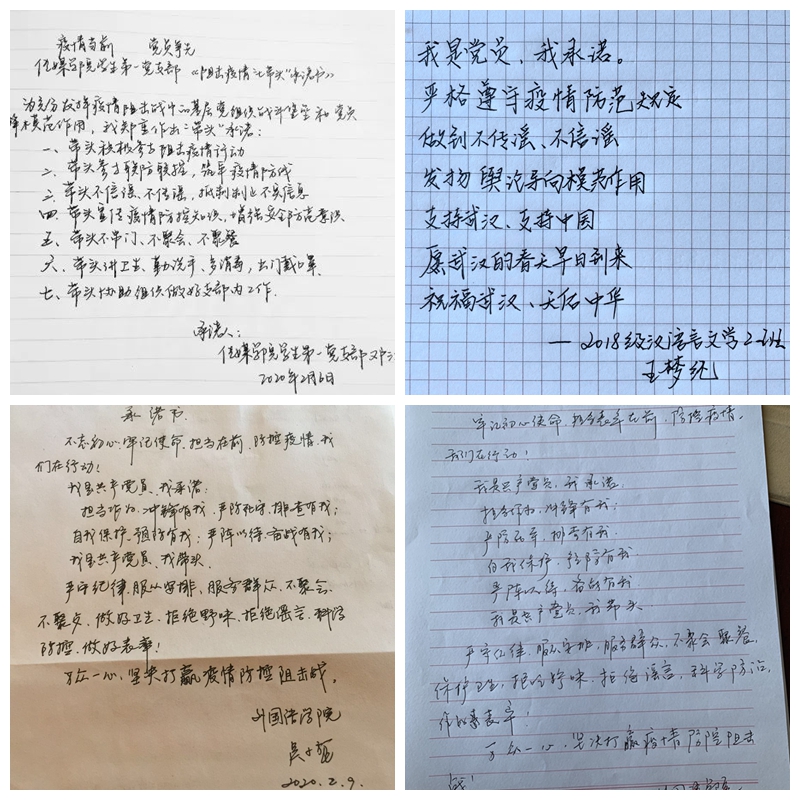 疫情当前 党员争先
传媒学院学生第一党支部《阻击疫情七带头"承诺书》
为充分发挥疫情阻击战中的基层党组织战斗堡垒和党员
模范作用，我郑重作出"带头"承诺：
一、带头积极参与阻击疫情行动
二、带头参与联防联控，筑牢疫情防线
三、带头不信谣、不传谣，抵制制止不实信息
四、带头宣传疫情防控知识，增强安全防范意识
五、带头不串门、不聚会、不聚餐
六、带头讲卫生、勤洗手、多消毒，出门戴口罩
七、带头协助组织做好支部内工作.
承诺人：
传媒学院学生第一党支部 邓
2020年2月6日
我是党员，我承诺。
严格遵守疫情防范规定
做到不传谣、不信谣
发扬舆论导向模范作用
支持武汉、支持中国
愿武汉的春天早日到来
祝福武汉、天佑中华
——2018级汉语言文学2班
王梦纯
承诺书
不忘初心、牢记使命，担当在前，防控疫情，我
们在行动！
我是共产党员，我承诺：
担当作为，冲锋有我，严防死守，排查有我；
自我保护，预防有我；严阵以待，奋战有我；
我是共产党员，我带头.
严守纪律，服从安排，服务群众，不聚会、
不聚餐，做好卫生，拒绝野味，拒绝谣言，科学
防控，做好表率！
万众一心，坚决打赢疫情防控阻击战。
外国语学院
吴
2020.2.9.
牢记初心使命，担当在前，防控疫情，
我们在行动！
我是共产党员，我承诺，
担当作为，冲锋有我；
严防死守，排查有我，
自我保护，预防有我
严阵以待，奋战有我
我是共产党员，我带头
严守纪律，服从安排，服务群众，不聚会聚餐，
保护卫生，拒吃野味，拒绝谣言，科学防治，
作好表率！
万众一心，坚决打赢疫情防控阻击
战！